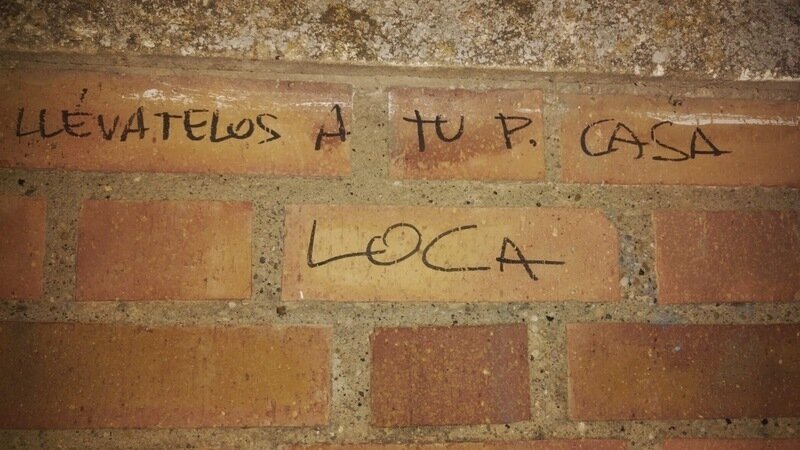 LLÉVATELOS A TU P. CASA
LOCA